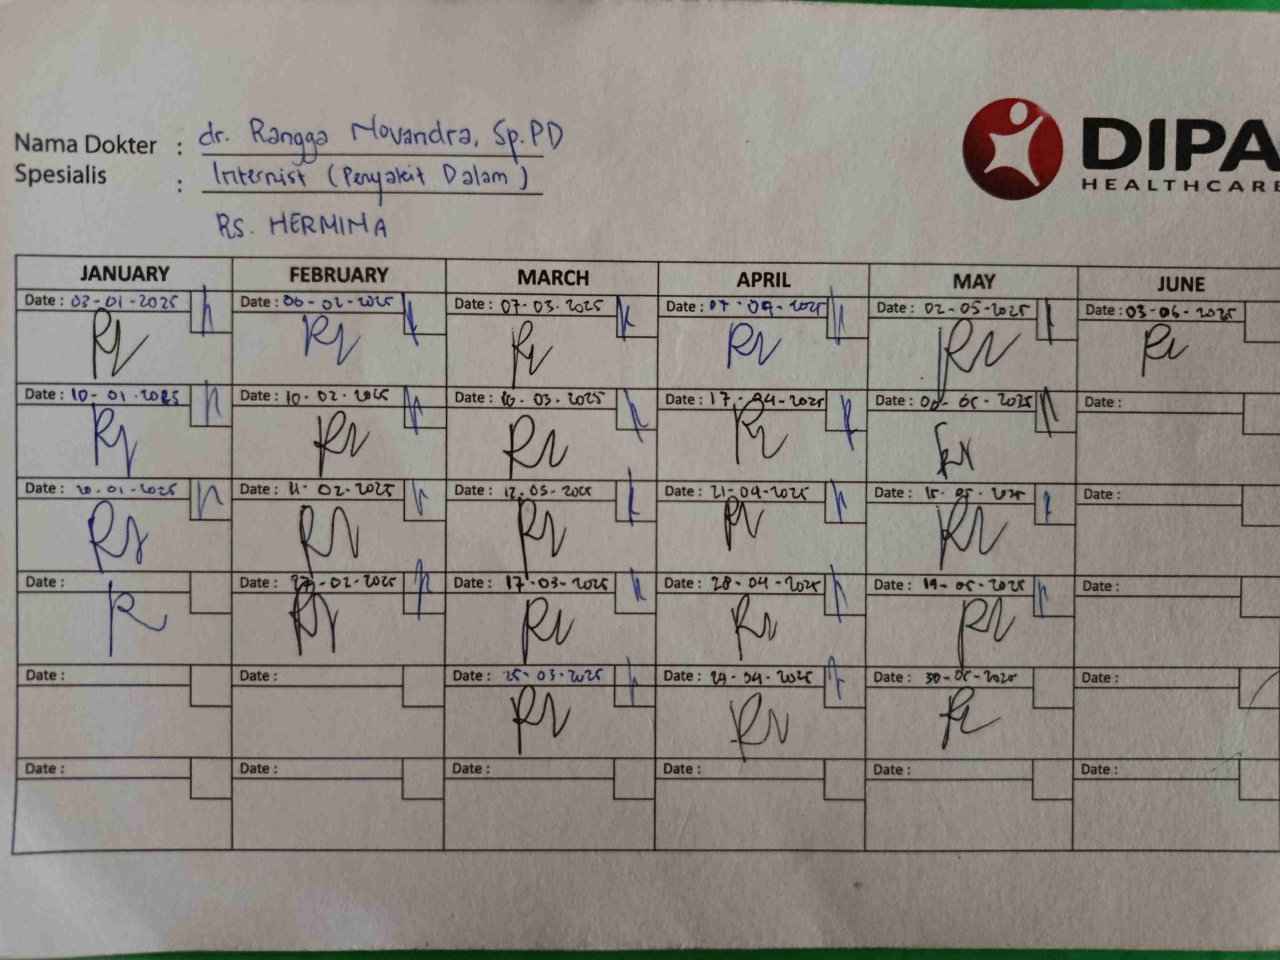 Nama Dokter : dr. Rangga Novandra, Sp.PD
Spesialis : Internist (Penyakit Dalam)
RS. HERMINA
DIPA
HEALTHCARE
JANUARY FEBRUARY MARCH APRIL MAY JUNE
Date : 03-01-2025 Date : 06-02-2025 Date : 07-03.2025 Date : 07-04-2025 Date : 02-05-2025 Date : 03-06-2025
Date : 10-01.2025 Date : 10-02-2025 Date : 10-03.2025 Date : 17-04-2025 Date : -05-2025 Date :
Date : 20.01-2025 Date : 11-02-2025 Date : 12.03-2025 Date : 21-04-2025 Date : 15-05-2025 Date :
Date : Date : 27-02-2025 Date : 17-03-2025 Date : 28-04-2025 Date : 19-05-2025 Date :
Date : Date : Date : 25-03-2025 Date : 29-04-2025 Date : 30-05-2025 Date :
Date : Date : Date : Date : Date : Date :